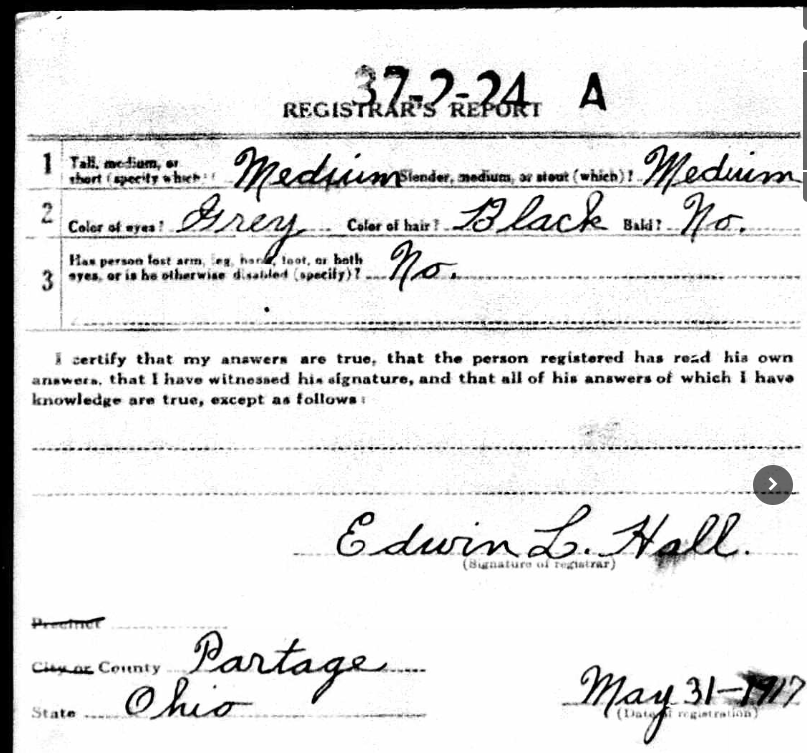 37-2-24 A
REGISTRAR'S REPORT
1 Tall, medium, or short (specify which)? Medium Slender, medium, or stout (which)? Medium
2 Color of eyes? Grey Color of hair? Black Bald? No.
3 Has person lost arm, leg, hand, foot, or both eyes, or is he otherwise disabled (specify)? No.
I certify that my answers are true, that the person registered has read his own
answers, that I have witnessed his signature, and that all of his answers of which I have
knowledge are true, except as follows:
Edwin L. Hall.
(Signature of registrar)
Precinct
City or County Partage
State Ohio
May 31-1917
(Date of registration)